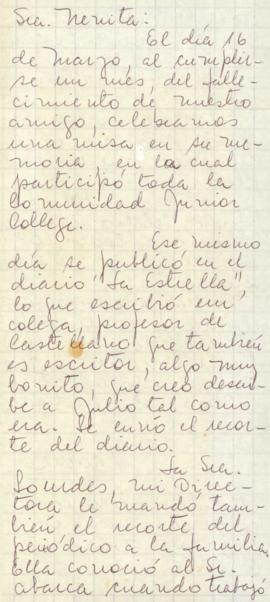 Sra. Nenita:
El día 16
de Marzo, al cumplir-
se un mes del falle-
cimiento de nuestro
amigo, celebramos
una misa en su me-
moria, en la cual
participó toda la
Comunidad Junior
College.
Ese mismo
día se publicó en el
diario "La Estrella",
lo que escribió un
colega, profesor de
Castellano que también
es escritor, algo muy
bonito, que creo descri-
be a Julio tal como
era. Le envío el recor-
te del diario.
La Sra.
Lourdes, mi Direc-
tora le mandó tam-
bién el recorte del
periódico a la familia.
Ella conoció al Sr.
Abarca cuando trabajó